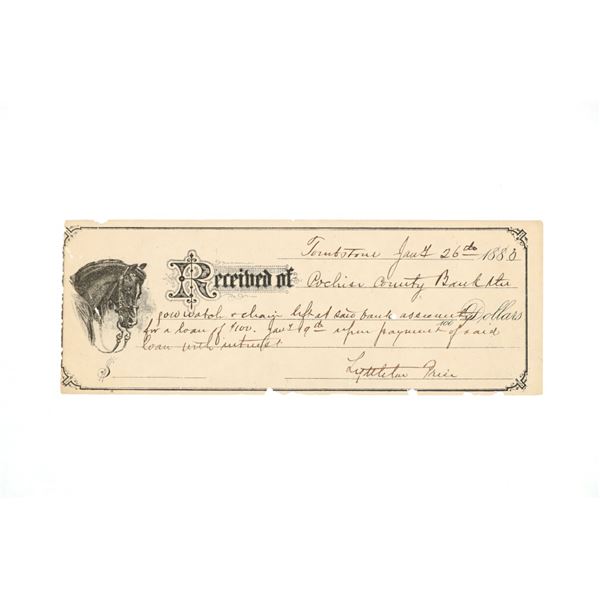 Tombstone Jany 26th 1883
Received of Cochise County Bank the
gold watch & chain left at said bank as security Dollars
for a loan of $100. Jany 19th upon payment of said
loan with interest
$
Lyttleton Price